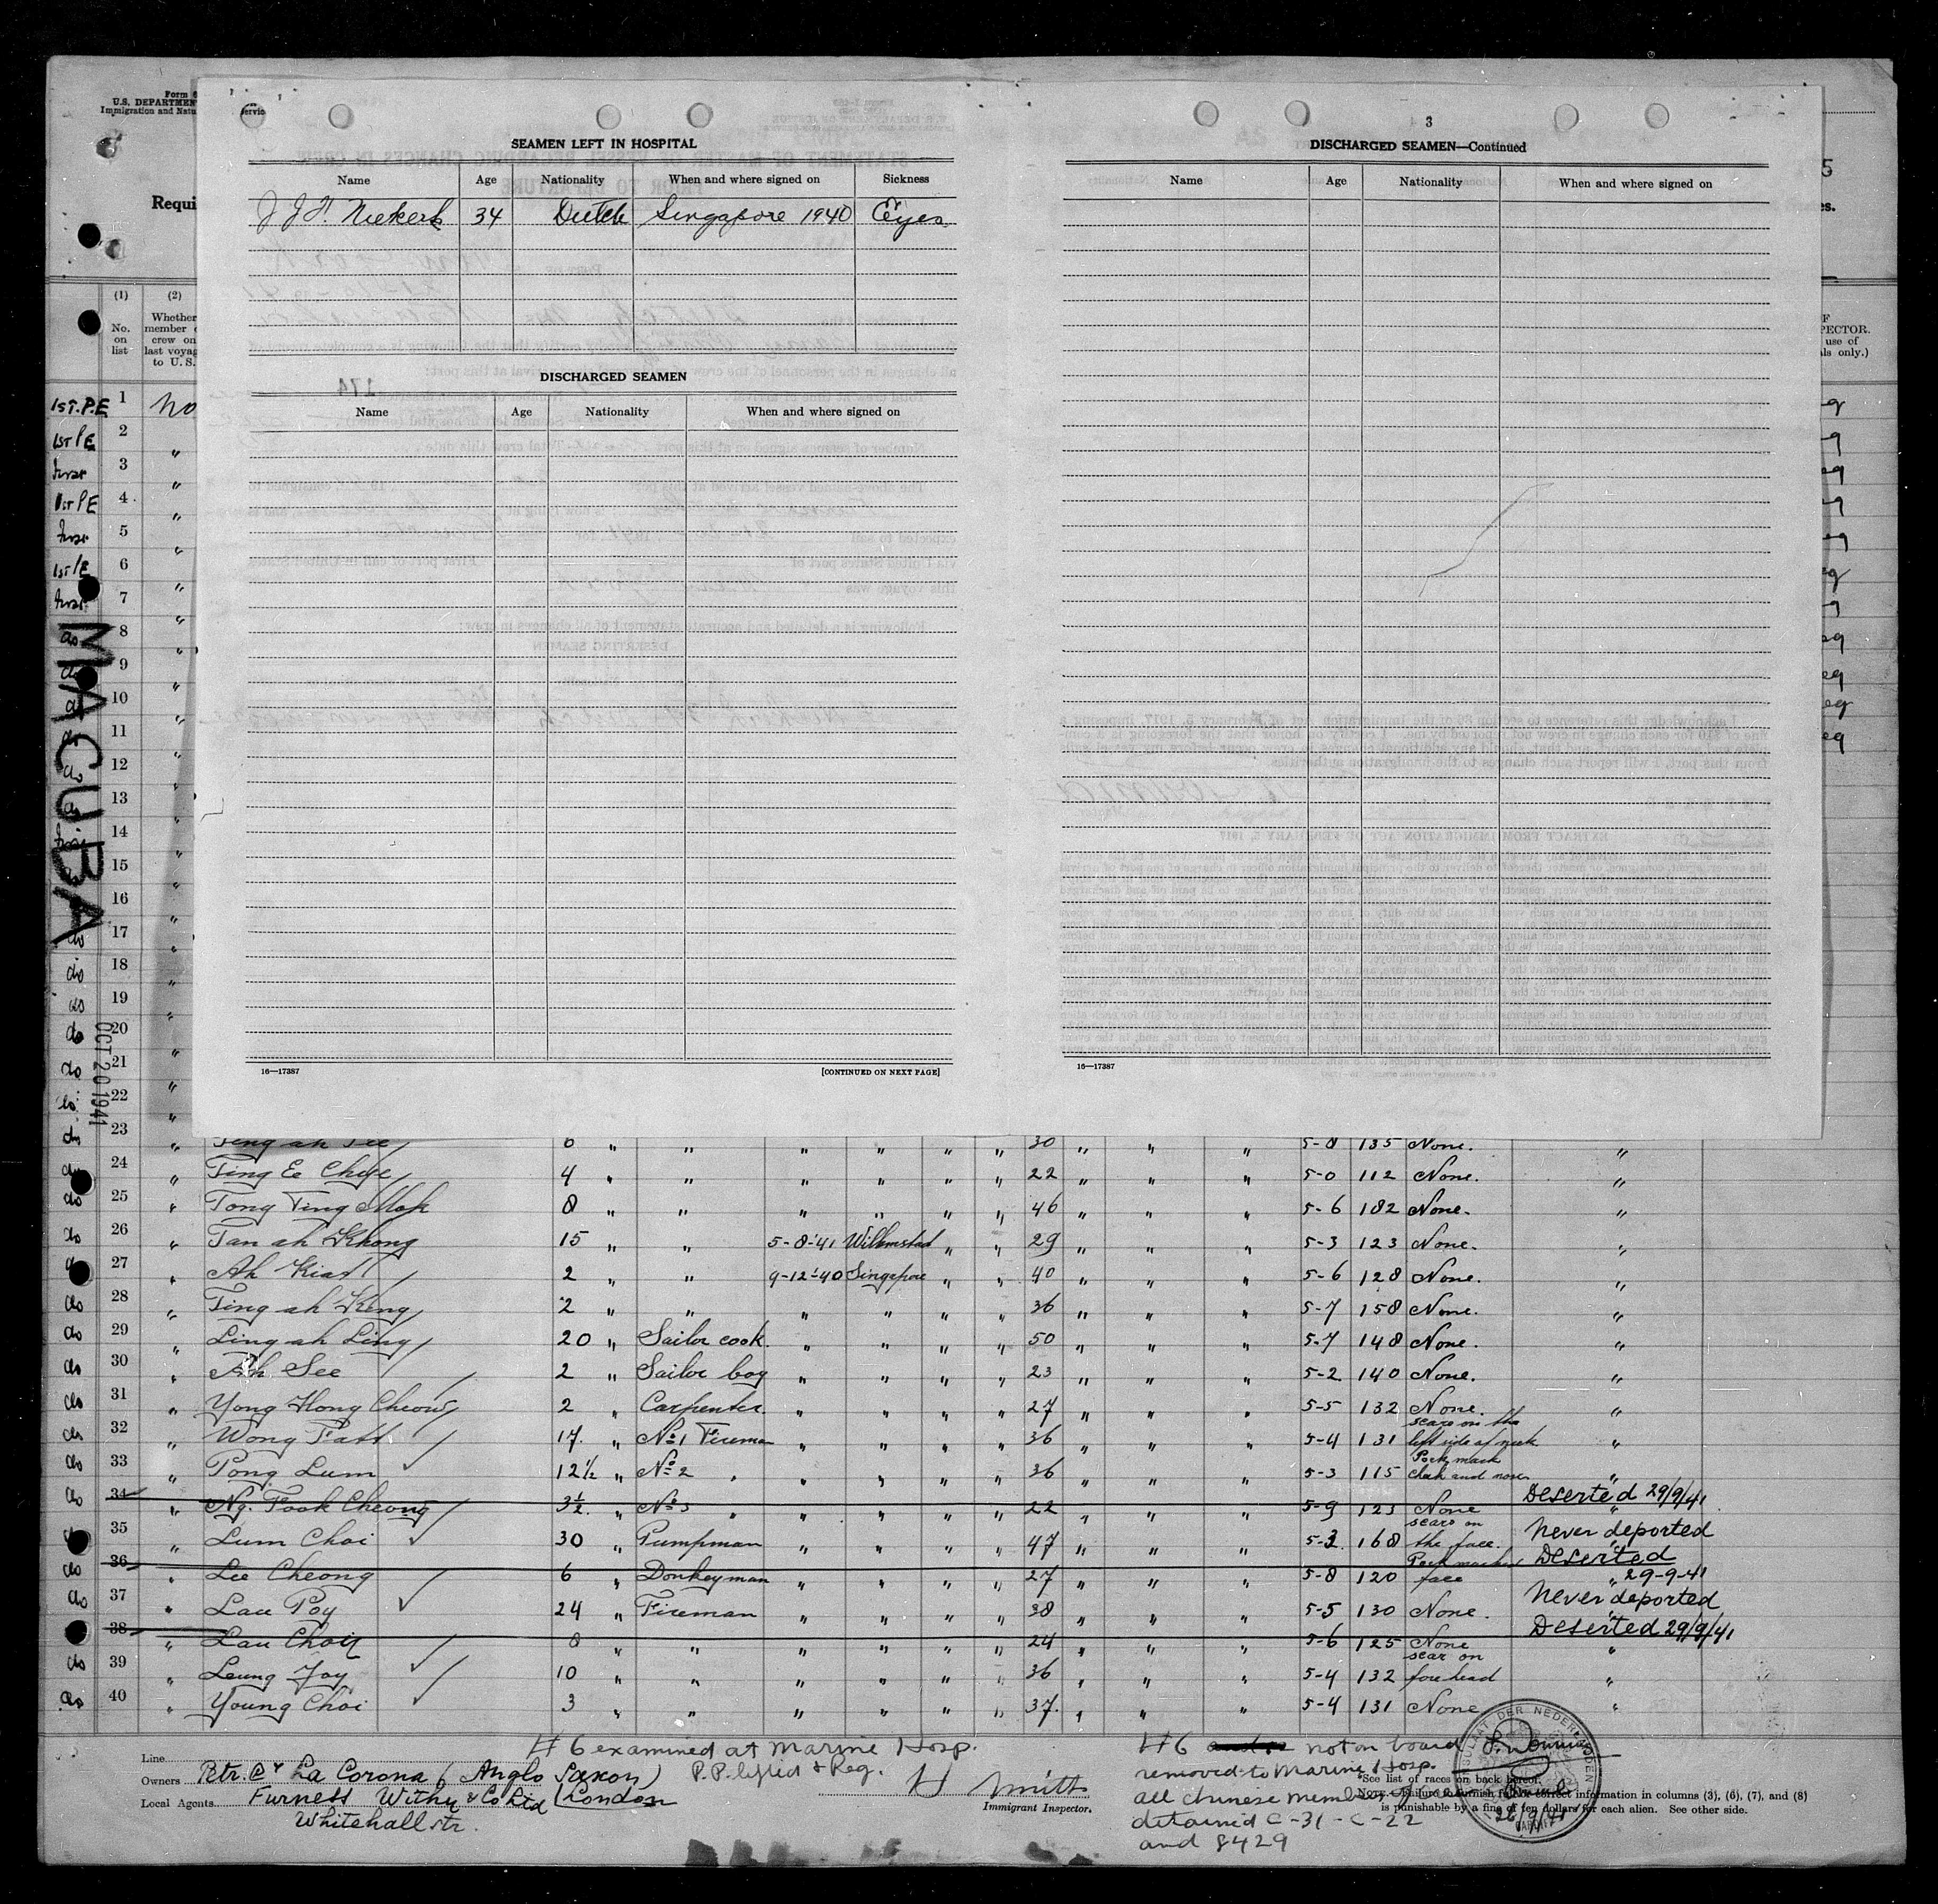 Form 6
U.S. DEPARTMENT
Immigration and Natu
Servic
Requi
SEAMEN LEFT IN HOSPITAL
Name Age Nationality When and where signed on Sickness
J J H. Niekerk 34 Dutch Singapore 1940 Eyes
DISCHARGED SEAMEN
Name Age Nationality When and where signed on
16—17387 [CONTINUED ON NEXT PAGE]
3
DISCHARGED SEAMEN—Continued
Name Age Nationality When and where signed on
16—17387
5
es.
F
PECTOR.
use of
ls only.)
(1) (2)
No. on list
Whether
member
crew on
last voyag
to U.S.
1st. P.E 1 No
1st PE 2 "
3 "
1st PE 4 "
5 "
1st PE 6 "
7 "
do 8 "
do 9 "
10 "
do 11 "
do 12 "
do 13
14 "
15 "
16 "
do 17 "
do 18 "
do 19 "
do 20 "
do 21 "
22 "
MACUBA
OCT 20 1941
do 23 " Ting ah See 6 " " " " " " 30 " " " 5-8 135 None. "
do 24 " Ting Ee Chye 4 " " " " " " 22 " " " 5-0 112 None. "
do 25 " Tong Ting Mok 8 " " " " " " 46 " " " 5-6 182 None. "
do 26 " Tan ah Khong 15 " " 5-8-'41 Willemstad " " 29 " " " 5-3 123 None. "
27 " Ah Kiat 2 " " 9-12-'40 Singapore " " 40 " " " 5-6 128 None. "
do 28 " Ting ah Keng 2 " " " " " " 36 " " " 5-7 158 None. "
do 29 " Ling ah Ling 20 " Sailor cook. " " " " 50 " " " 5-7 148 None. "
do 30 " Ah See 2 " Sailor boy " " " " 23 " " " 5-2 140 None. "
do 31 " Yong Hong Cheong 2 " Carpenter. " " " " 27 " " " 5-5 132 None. "
do 32 " Wong Fatt 17. " No 1 Fireman " " " " 36 " " " 5-4 131 scars on the left side of neck "
do 33 " Pong Lum 12 1/2 " No 2 " " " " " 36 " " " 5-3 115 Pock mark cheek and nose "
do 34 " Ng. Fook Cheong 3 1/2. " No 3 " " " " " 22 " " " 5-9 123 None Deserted 29/9/41
35 " Lum Choi 30 " Pumpman " " " " 47 " " " 5-3. 168 scars on the face. Never deported
do 36 " Lee Cheong 6 " Donkeyman " " " " 27 " " " 5-8 120 Pock marked face Deserted 29-9-41
do 37 " Lau Poy 24 " Fireman " " " " 38 " " " 5-5 130 None. Never deported
38 " Lau Choy 8 " " " " " " 24 " " " 5-6 125 None Deserted 29/9/41
do 39 " Leung Joy 10 " " " " " " 36 " " " 5-4 132 scar on forehead "
do 40 " Young Choi 3 " " " " " " 37. " " " 5-4 131 None "
# 6 examined at Marine Hosp.
P.P. lifted & Reg.
Line
Owners Petr. Cy La Corona (Anglo Saxon) London
Local Agents Furness Withy & Co Ltd
Whitehall str.
H Smith
Immigrant Inspector.
# 6 not on board
removed to Marine Hosp.
all chinese members of
detained C-31-C-22
and 8429
See list of races on back hereof.
NOTE.—Failure to furnish full or correct information in columns (3), (6), (7), and (8)
is punishable by a fine of ten dollars for each alien. See other side.
CONSULAAT DER NEDERLANDEN
CARDIFF
26/9/41